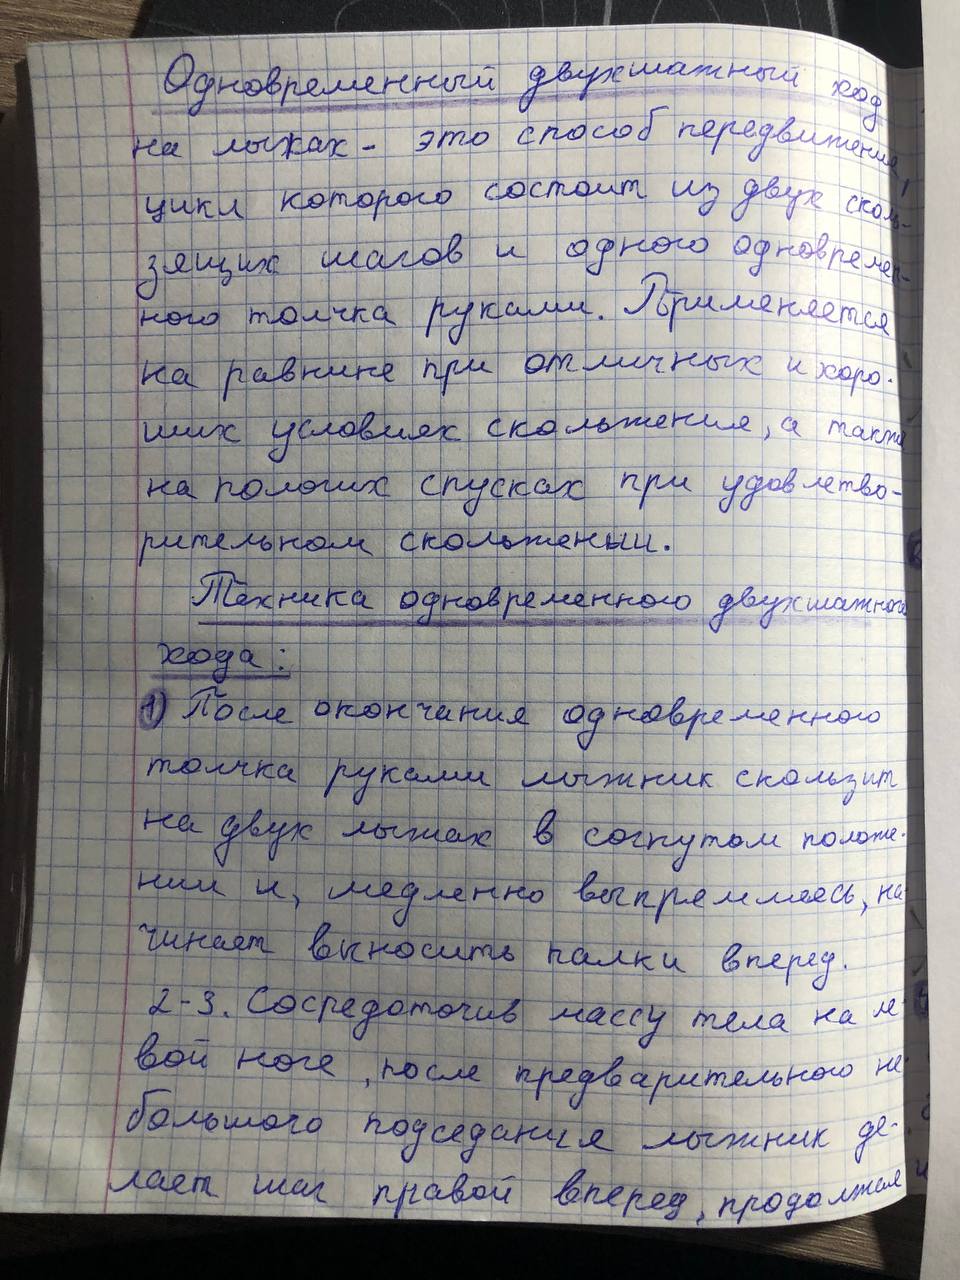 Одновременный двухшажный ход
на лыжах - это способ передвижения,
цикл которого состоит из двух сколь-
зящих шагов и одного одновремен-
ного толчка руками. Применяется
на равнине при отличных и хоро-
ших условиях скольжения, а также
на пологих спусках при удовлетво-
рительном скольжении.
Техника одновременного двухшажного
хода:
1) После окончания одновременного
толчка руками лыжник скользит
на двух лыжах в согнутом положе-
нии и, медленно выпрямляясь, на
чинает выносить палки вперед.
2-3. Сосредоточив массу тела на ле-
вой ноге, после предварительного не-
большого подседания лыжник де-
лает шаг правой вперед, продолжая